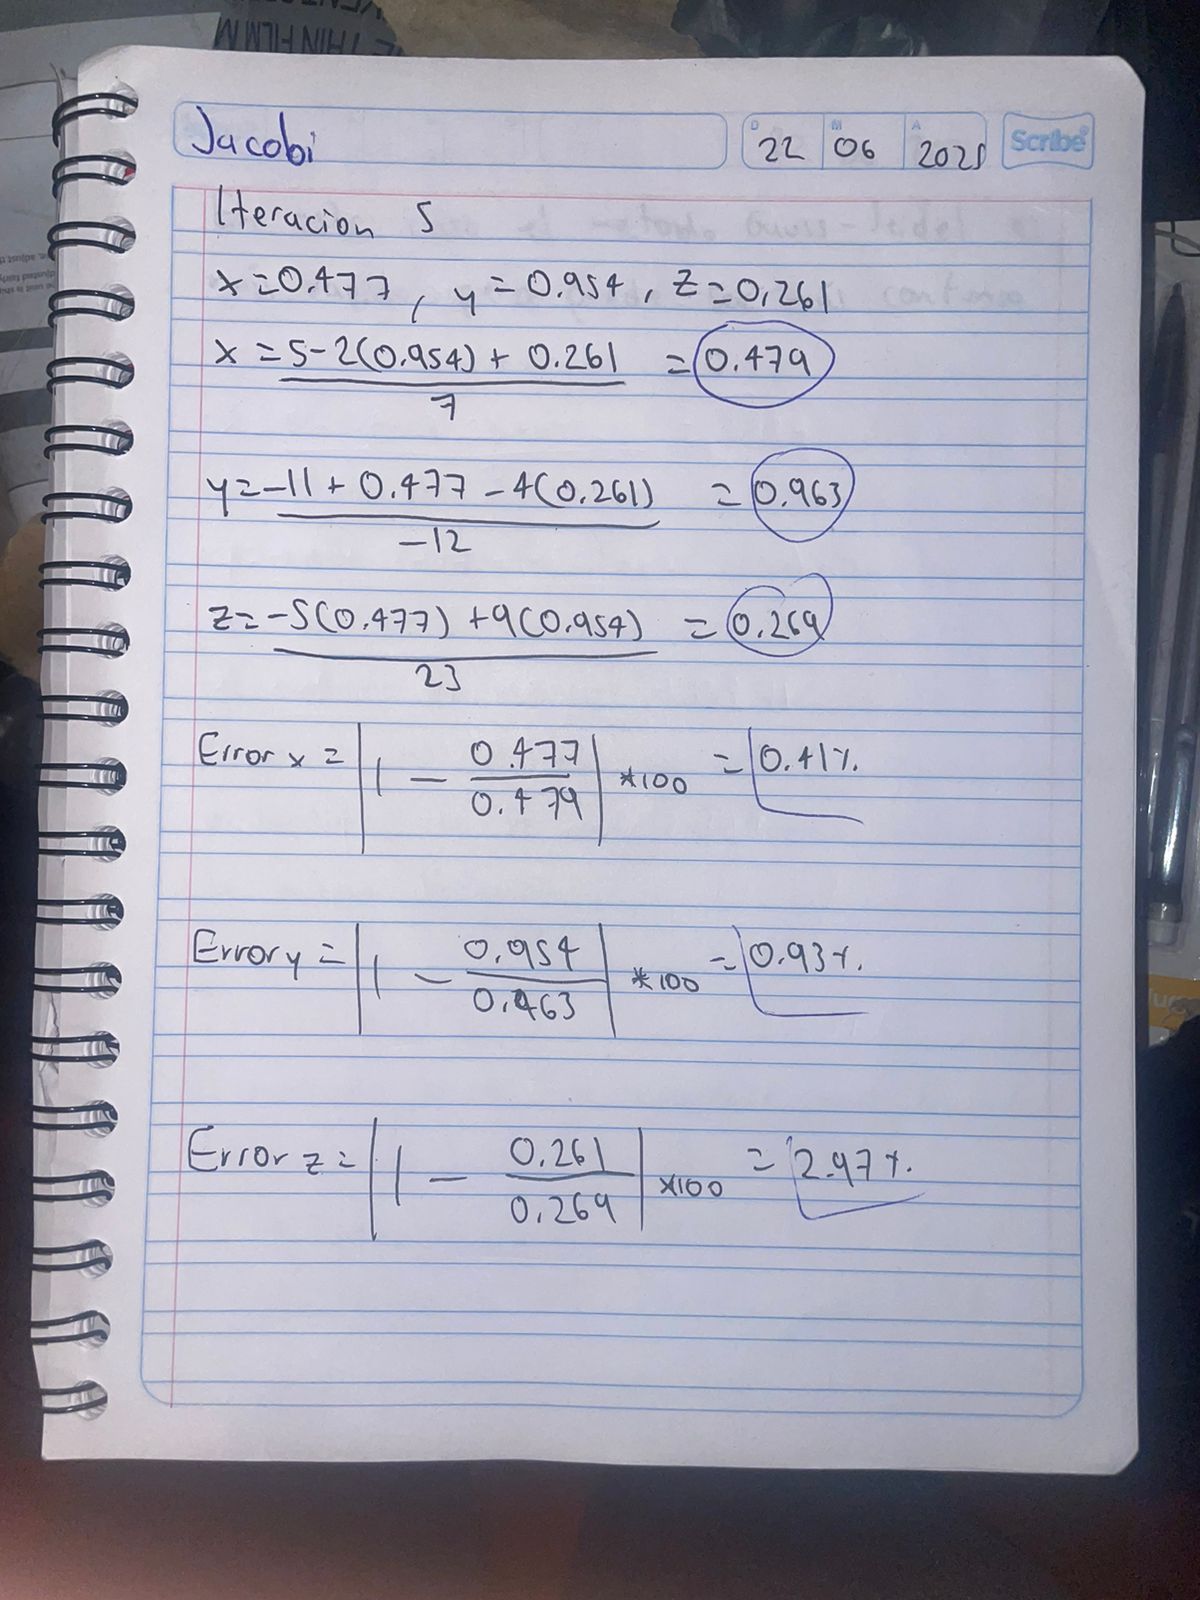 E THIN FILM M
Jacobi
D 22 M 06 A 2025 Scribe
Iteracion 5
x=0.477, y=0.954, z=0.261
x = 5-2(0.954) + 0.261 = 0.479
7
y = -11 + 0.477 - 4(0.261) = 0.963
-12
z = -5(0.477) + 9(0.954) = 0.269
23
Error x = |1 - 0.477 / 0.479| *100 = 0.41%.
Error y = |1 - 0.954 / 0.963| *100 = 0.93%.
Error z = |1 - 0.261 / 0.269| *100 = 2.97%.